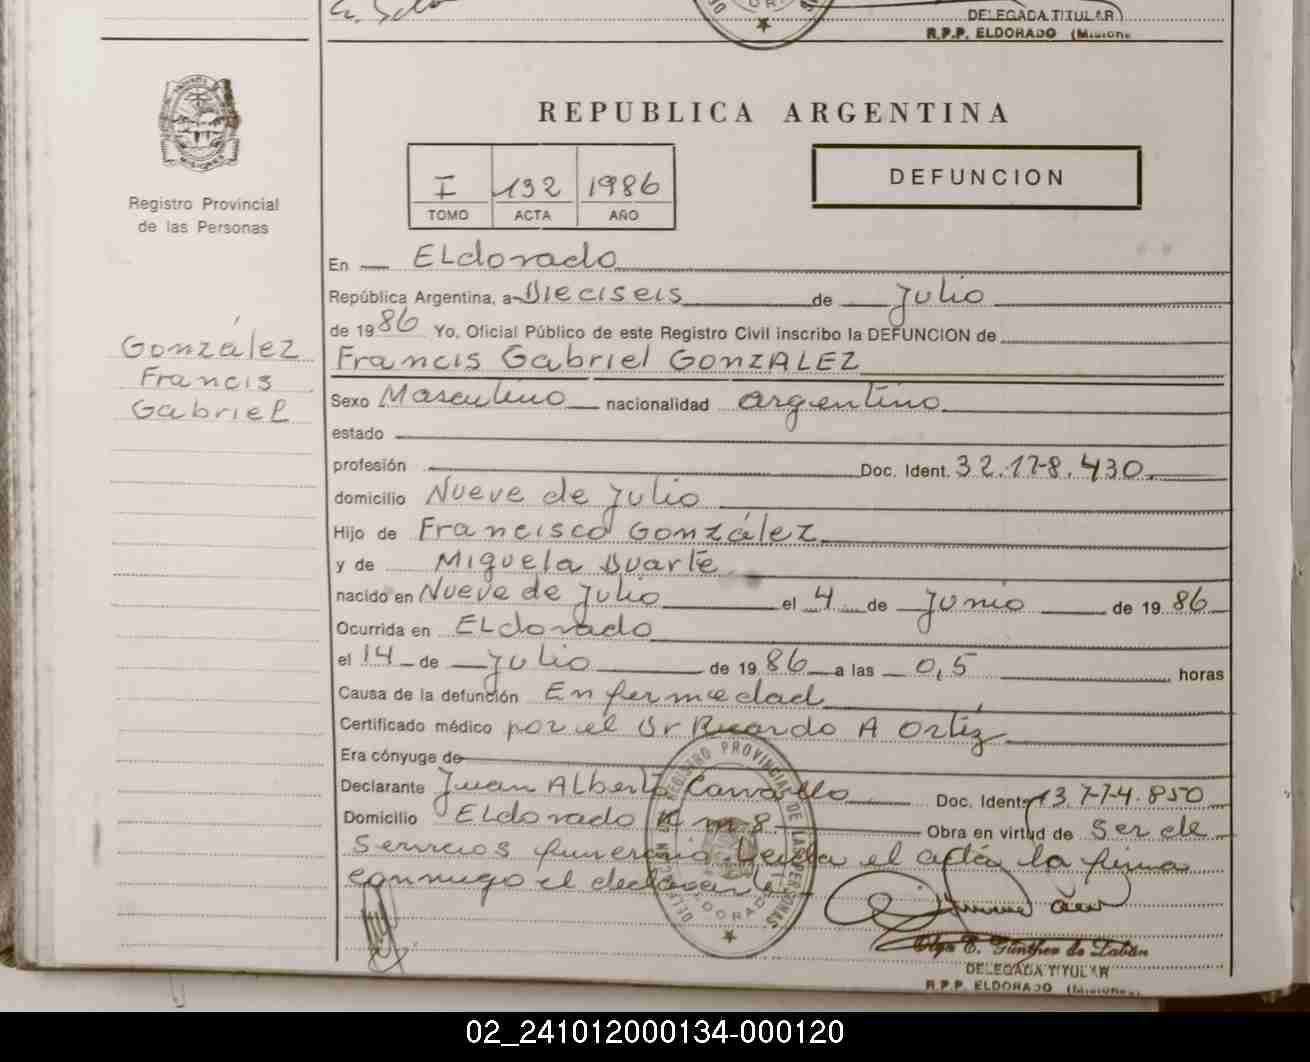 DELEGADA TITULAR
R.P.P. ELDORADO (Misiones
REPUBLICA ARGENTINA
I 132 1986
TOMO ACTA AÑO
DEFUNCION
Registro Provincial
de las Personas
González
Francis
Gabriel
En ELdorado
República Argentina, a Dieciseis de Julio
de 1986 Yo, Oficial Público de este Registro Civil inscribo la DEFUNCION de
Francis Gabriel GONZALEZ
Sexo Masculino nacionalidad argentino
estado
profesión Doc. Ident. 32.178.430
domicilio Nueve de Julio
Hijo de Francisco González
y de Miguela Duarte
nacido en Nueve de Julio el 4 de Junio de 1986
Ocurrida en ELdorado
el 14 de Julio de 1986 a las 0,5 horas
Causa de la defunción Enfermedad
Certificado médico por el Dr Ricardo A Ortíz
Era cónyuge de
Declarante Juan ALberto Carvallo Doc. Ident. 13.774.850
Domicilio ELdorado Km 8 Obra en virtud de Ser de
Servicios funerario. Leida el acta la firma
conmigo el declarante
REGISTRO PROVINCIAL DE LAS PERSONAS
ELDORADO
Olga E. Günther de
DELEGADA TITULAR
R.P.P. ELDORADO (Misiones
02_241012000134-000120